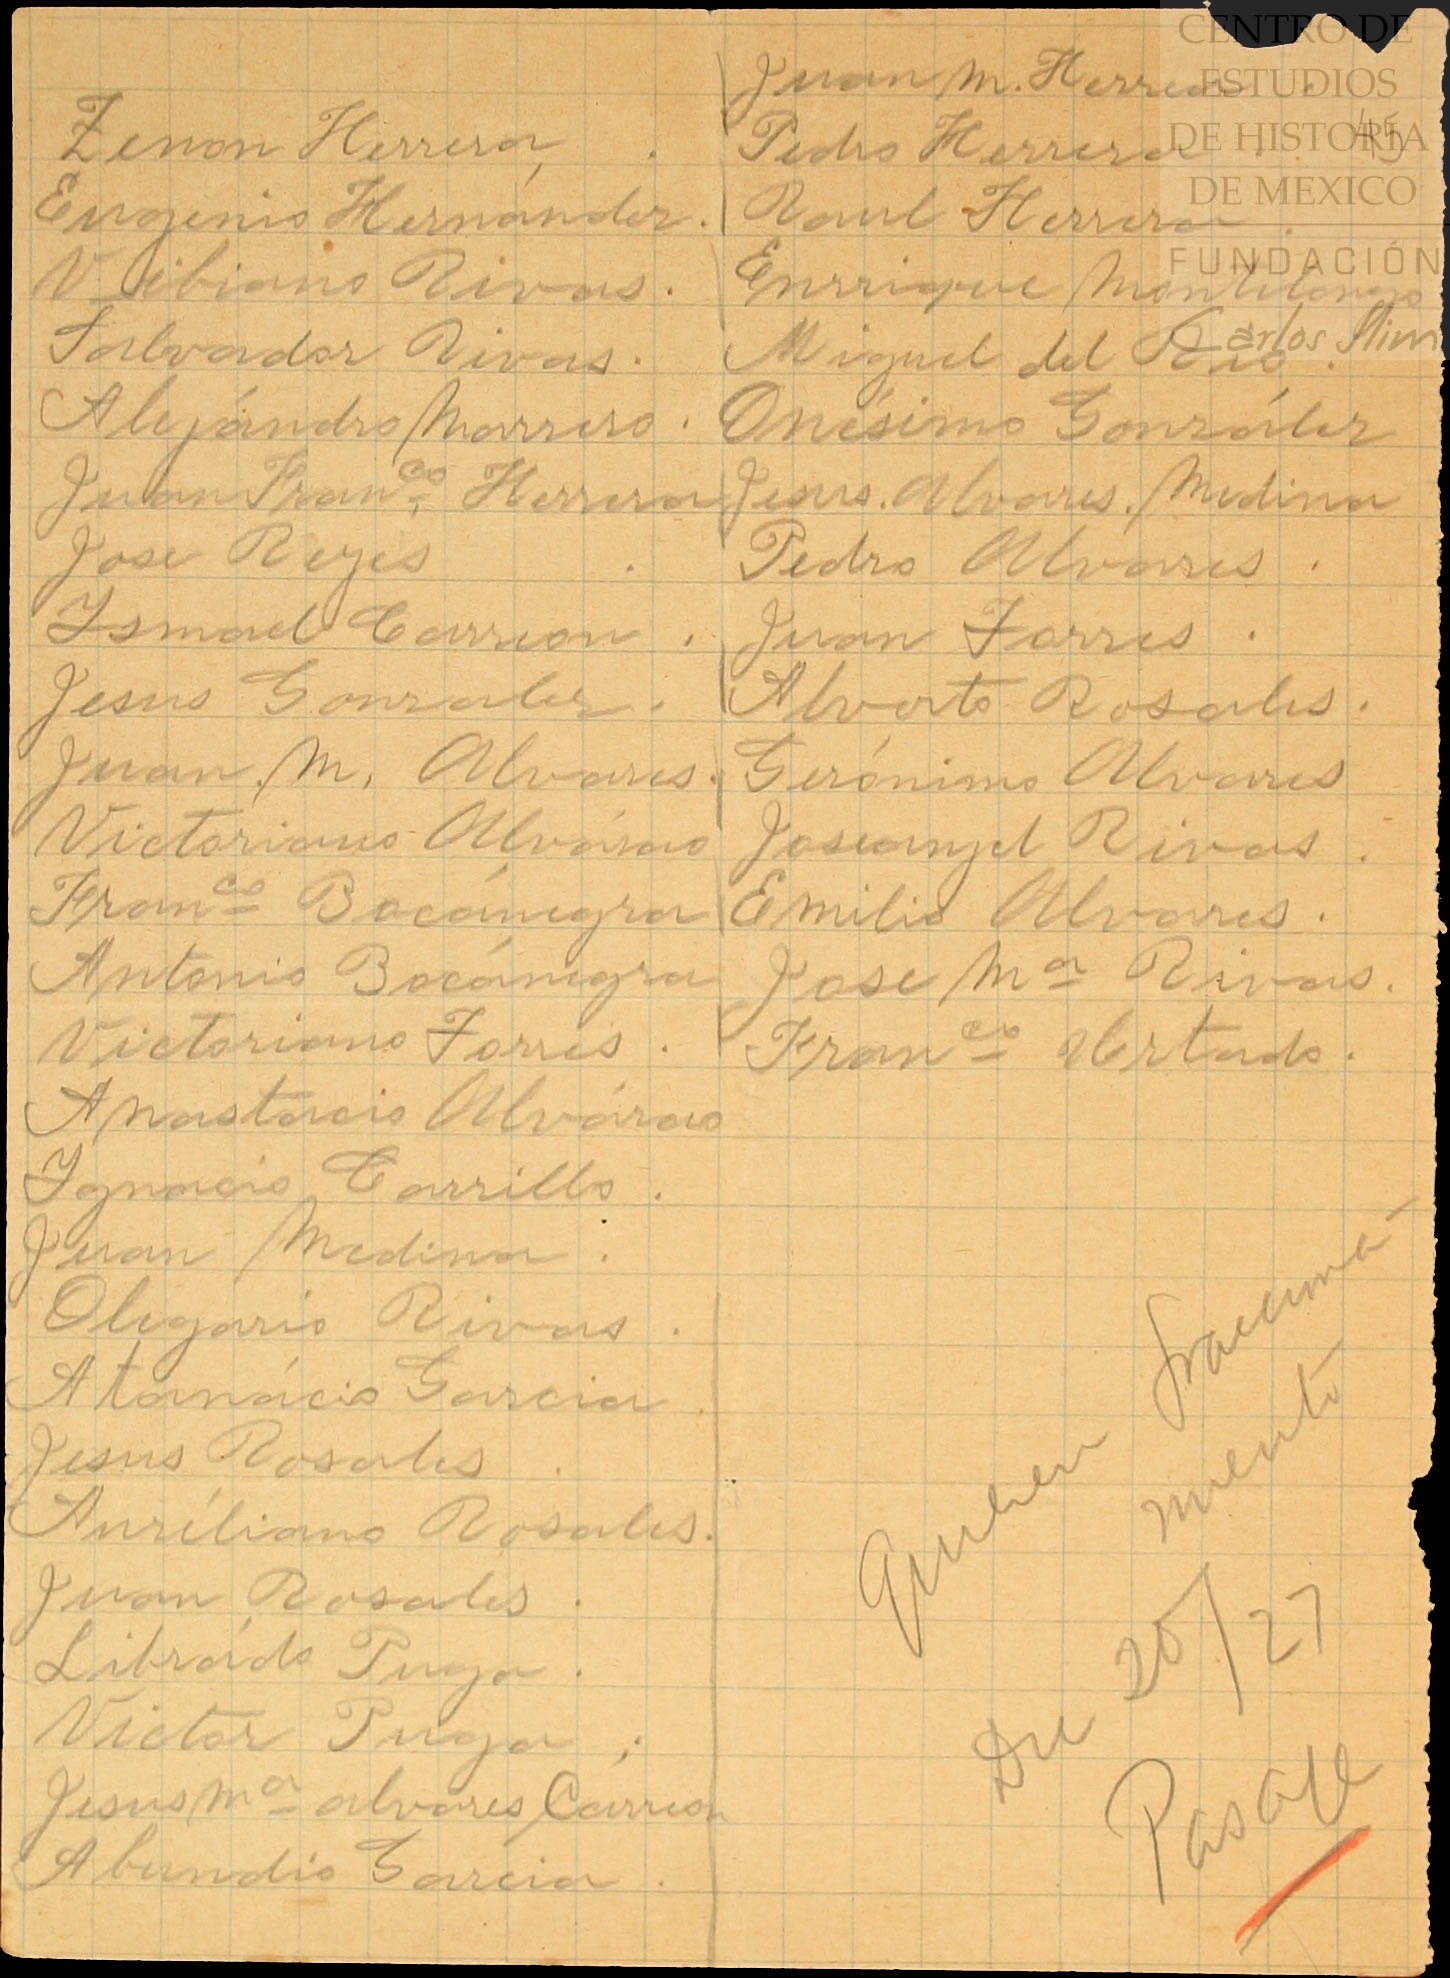 Zenon Herrera .
Eugenio Hernánder .
Vibiano Rivas .
Salvador Rivas .
Alejándro Marrero .
Juan Franco. Herrera
Jose Reyes .
Ismael Carreon .
Jesus Gonzalez .
Juan M. Alvares .
Victoriano Alvárao
Franco Bocánegra
Antonio Bocánegra
Victoriano Torres .
Anastacio Alvárao
Ignacio Carrillo .
Juan Medina .
Olegario Rivas .
Atanácio Garcia .
Jesus Rosales .
Auréliano Rosales .
Juan Rosales .
Librádo Puga .
Victor Puga .
Jesus Ma alvares Carreon
Abundio Garcia .
Juan M. Herrera .
Pedro Herrera .
Raul Herrera .
Enrrique Montelongo
Miguel del Rio .
Onésimo Gonzáler
Jesus. Alvares. Medina
Pedro Alvares .
Juan Torres .
Alverto Rosales .
Gerónimo Alvares
Joseangel Rivas .
Emilio Alvares .
Jose Ma Rivas .
Franco Urtado .
45
Quieren fraccima-
mento
Dic 20/27
Pasaje
CENTRO DE
ESTUDIOS
DE HISTORIA
DE MEXICO
FUNDACIÓN
Carlos Slim